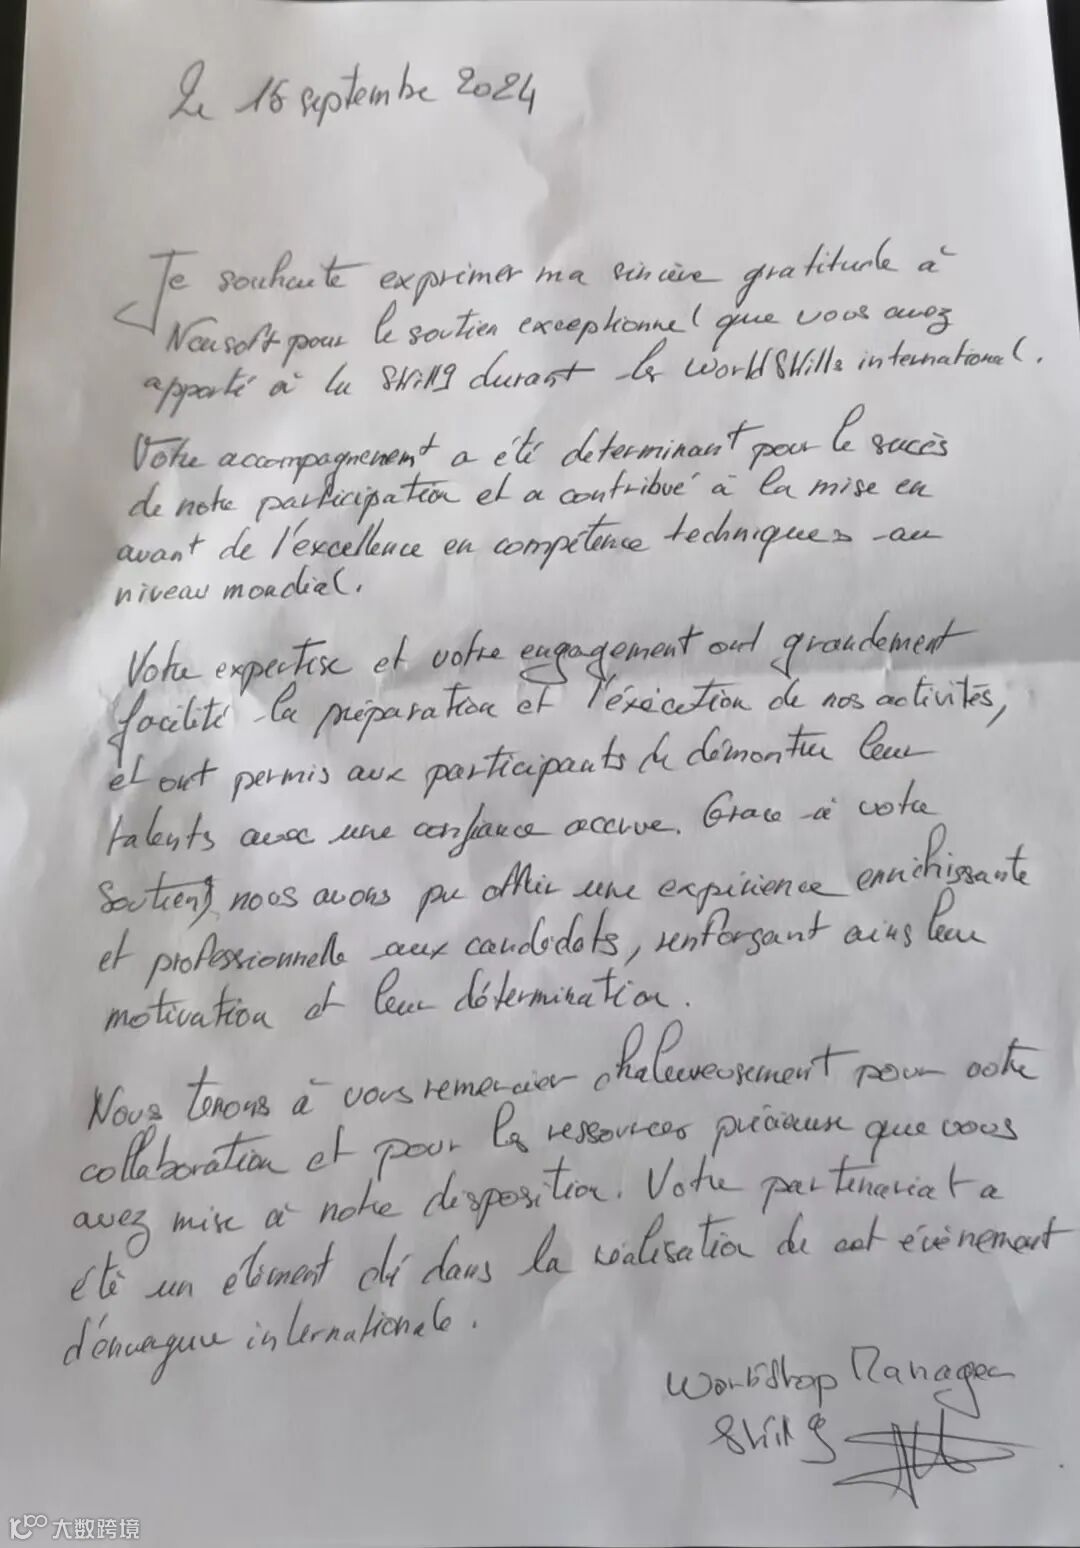 Le 16 septembre 2024
Je souhaite exprimer ma sincère gratitude à
Neusoft pour le soutien exceptionnel que vous avez
apporté à la Skill 9 durant les WorldSkills international.
Votre accompagnement a été determinant pour le succès
de notre participation et a contribué à la mise en
avant de l'excellence en compétence techniques au
niveau mondial.
Votre expertise et votre engagement ont grandement
facilité la préparation et l'éxécution de nos activités,
et ont permis aux participants de démontrer leur
talents avec une confiance accrue. Grace à votre
Soutien, nous avons pu offrir une expérience enrichissante
et professionnelle aux candidats, renforçant ainsi leur
motivation et leur détermination.
Nous tenons à vous remercier chaleureusement pour votre
collaboration et pour les ressources précieuse que vous
avez mise à notre disposition. Votre partenariat a
été un élément clé dans la réalisation de cet évènement
d'envergure internationale.
Workshop Manager
Skill 9
大数跨境